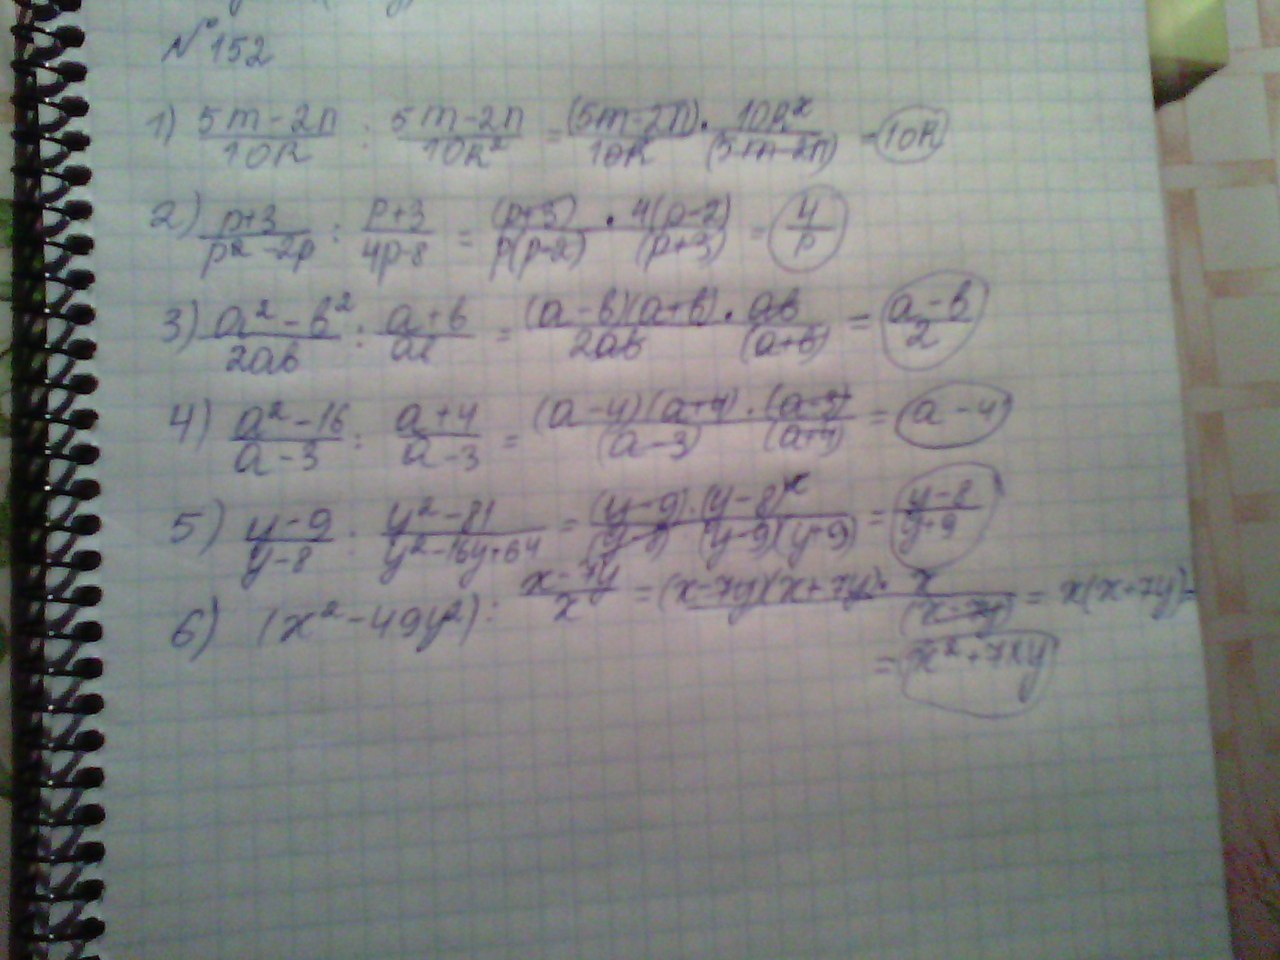 № 152
1) (5m-2n)/(10k) : (5m-2n)/(10k²) = (5m-2n)/(10k) · (10k²)/(5m-2n) = 10k
2) (p+3)/(p²-2p) : (p+3)/(4p-8) = (p+3)/(p(p-2)) · (4(p-2))/(p+3) = 4/p
3) (a²-b²)/(2ab) : (a+b)/(ab) = ((a-b)(a+b))/(2ab) · (ab)/(a+b) = (a-b)/2
4) (a²-16)/(a-3) : (a+4)/(a-3) = ((a-4)(a+4))/(a-3) · (a-3)/(a+4) = a-4
5) (y-9)/(y-8) : (y²-81)/(y²-16y+64) = (y-9)/(y-8) · (y-8)²/((y-9)(y+9)) = (y-8)/(y+9)
6) (x²-49y²) : (x-7y)/x = (x-7y)(x+7y) · x/(x-7y) = x(x+7y) =
= x²+7xy